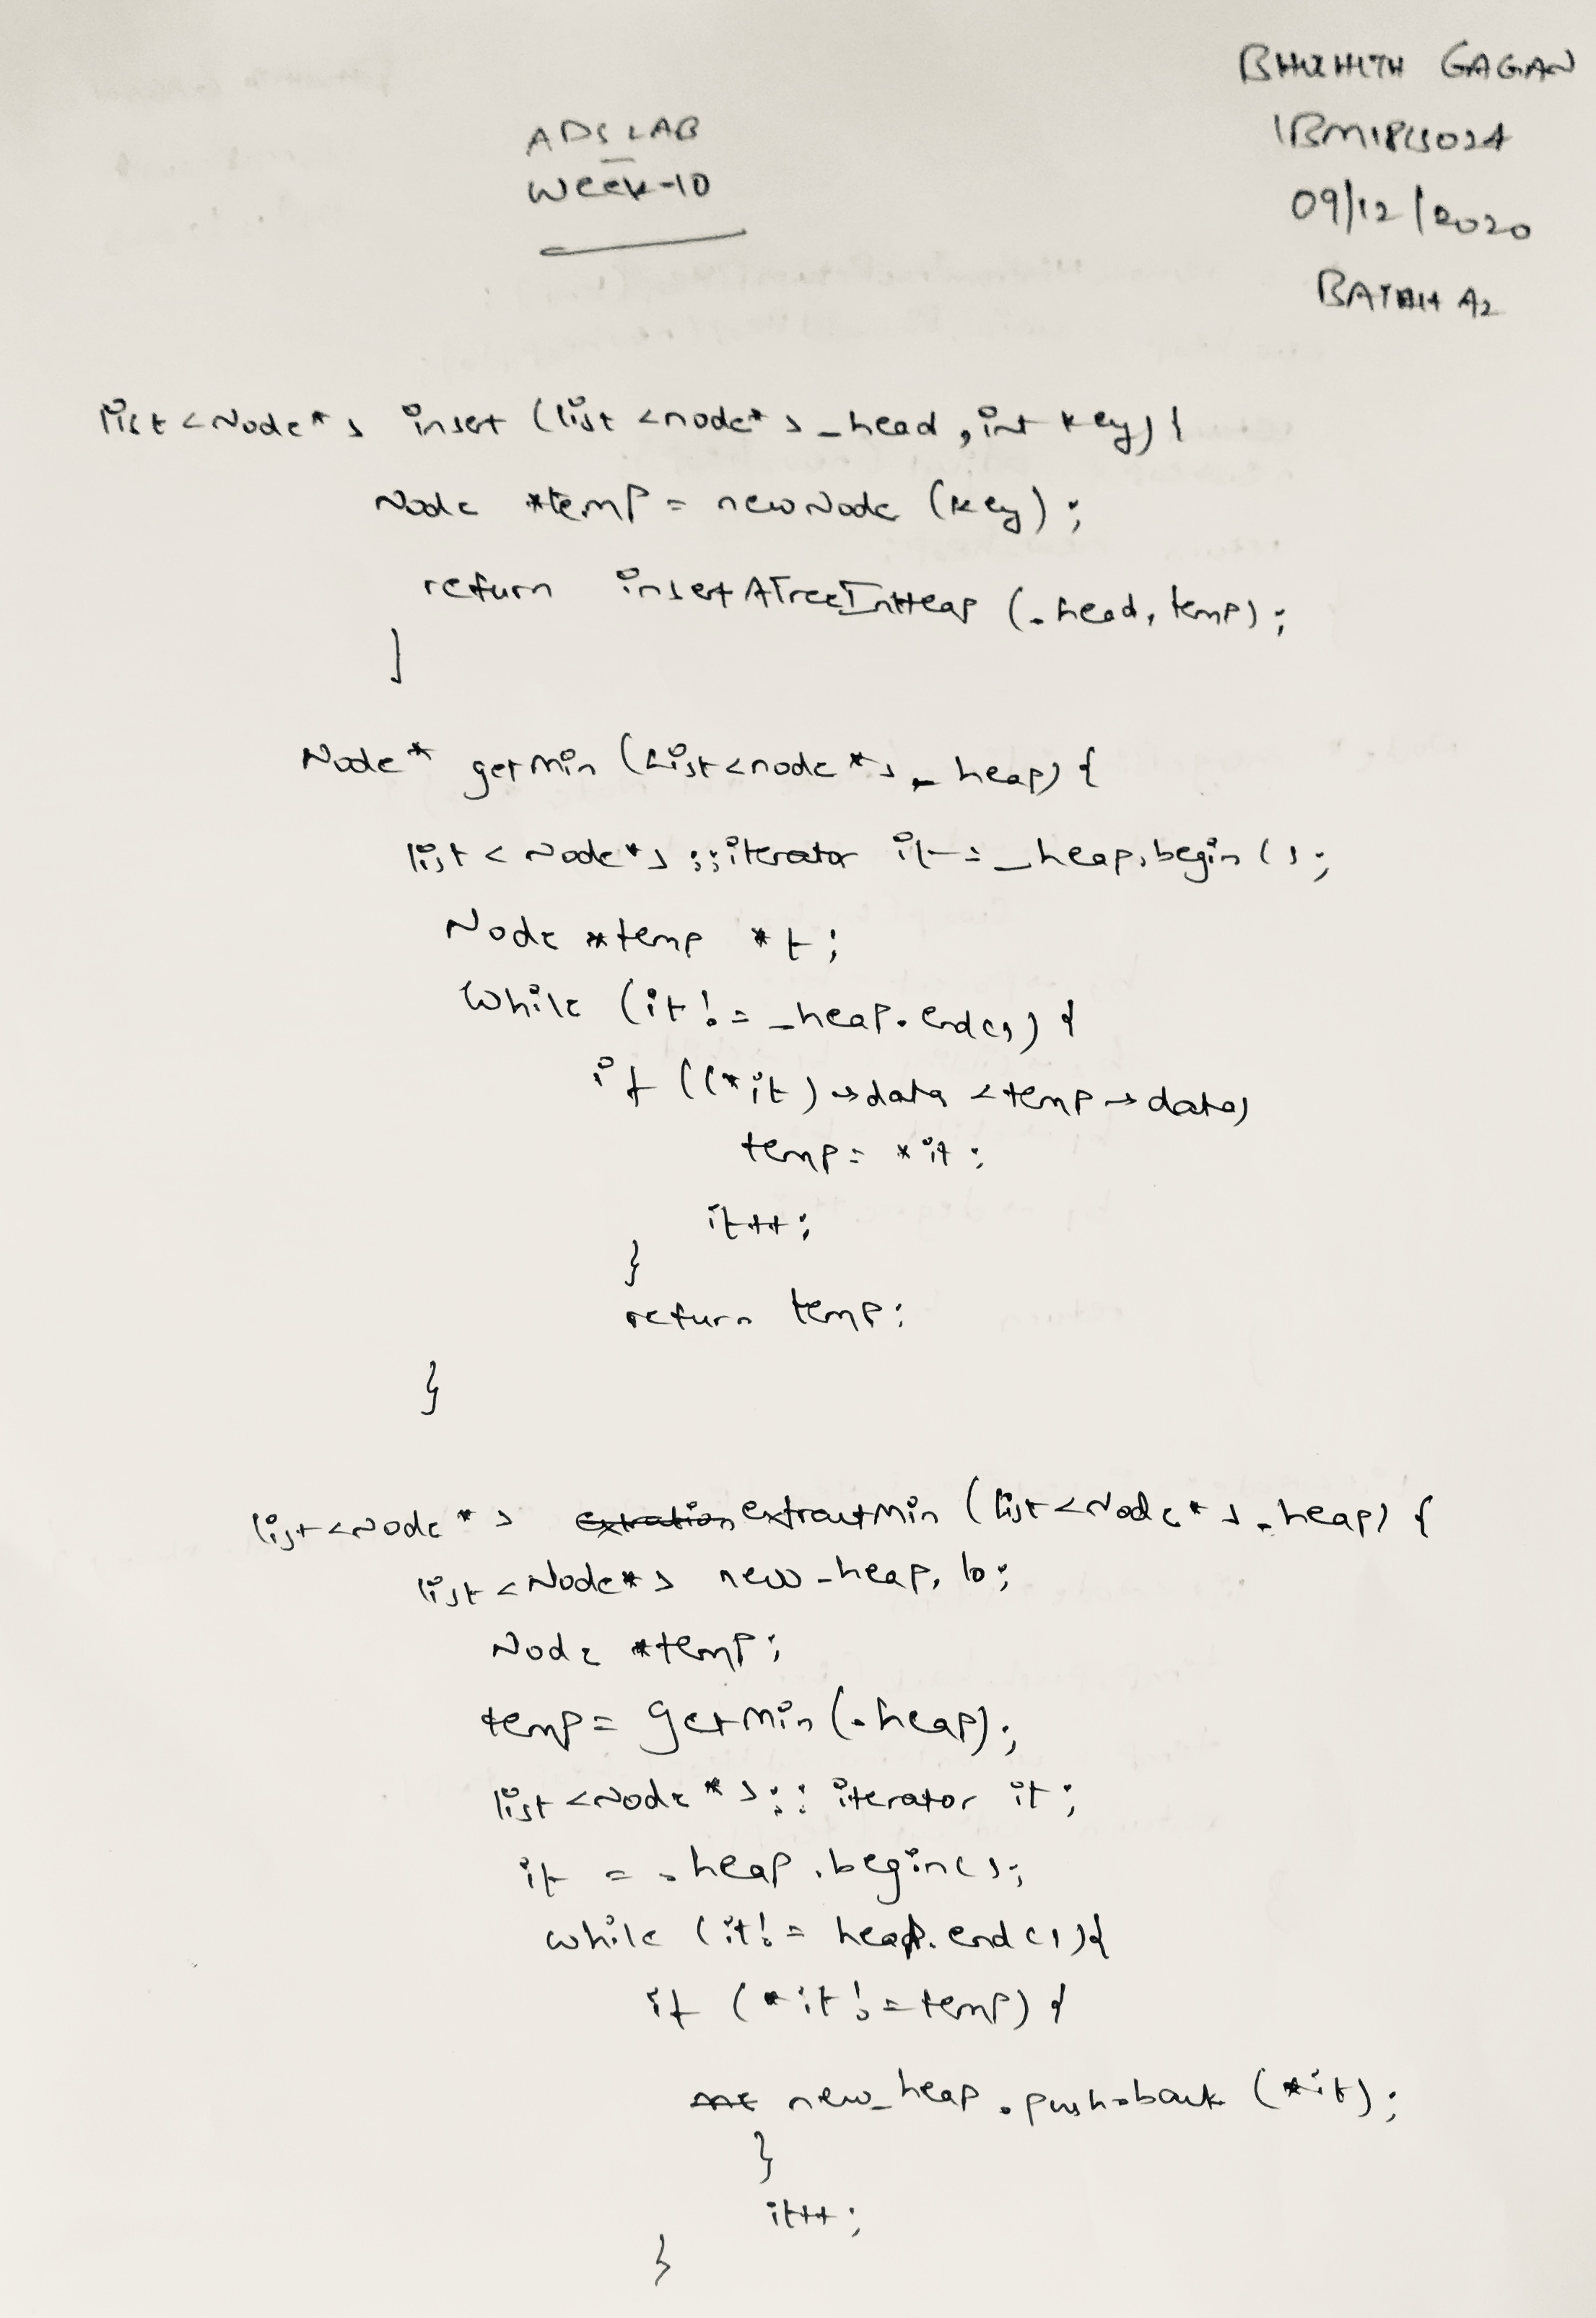 BHUHITH GAGAN
ADS LAB
1BM18CS024
Week-10
09/12/2020
BATCH A2
list<Node*> insert (list <node*> _head, int key) {
Node *temp = newNode (key);
return insertATreeInHeap (_head, temp);
}
Node* getMin (List<node*> _heap) {
list<Node*>::iterator it = _heap.begin();
Node *temp *t;
while (it != _heap.end()) {
if ((*it)->data < temp->data)
temp = *it;
it++;
}
return temp;
}
list<Node*> extration extractMin (list<Node*> _heap) {
list<Node*> new_heap, lo;
Node *temp;
temp = getMin(_heap);
list<Node*>::iterator it;
it = _heap.begin();
while (it != heap.end()){
if (*it != temp) {
new_heap.push_back (*it);
}
it++;
}